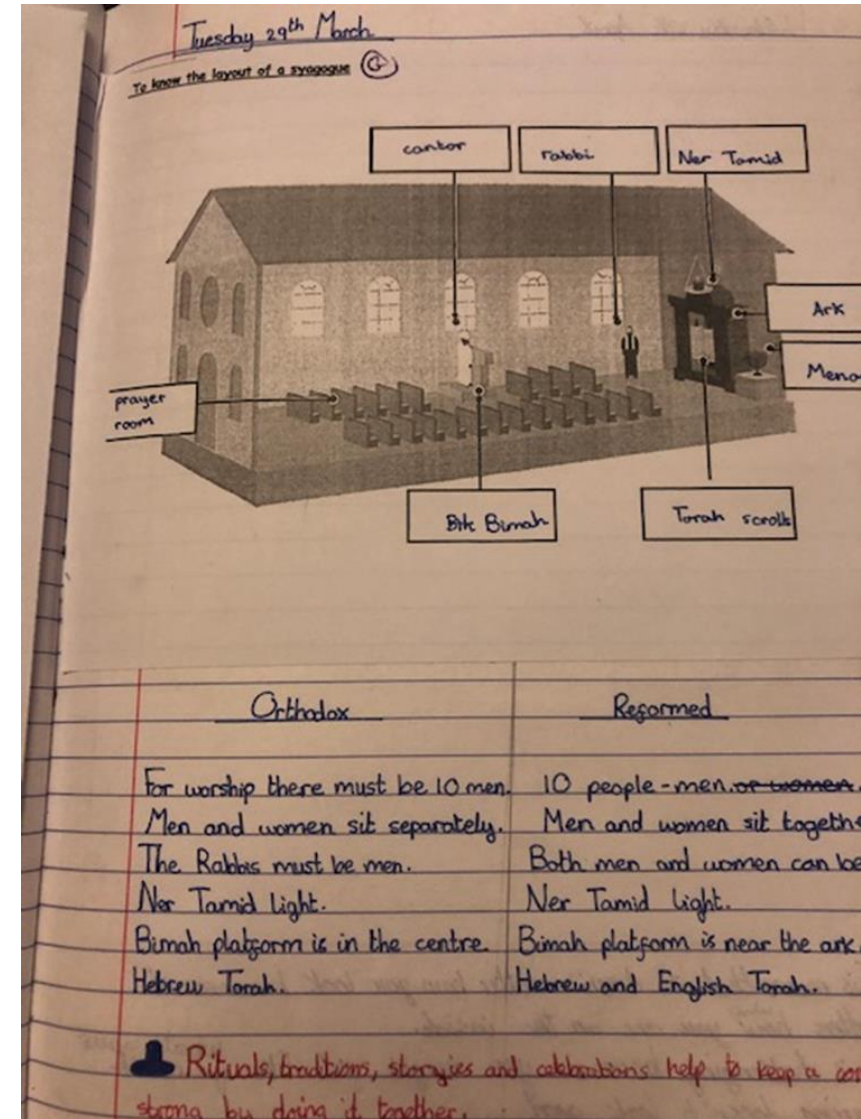 Tuesday 29th March
To know the layout of a syagogue G
cantor
rabbi
Ner Tamid
Ark
Meno
prayer
room
Bimah
Torah scrolls
Orthodox
Reformed
For worship there must be 10 men.
10 people - men. or women.
Men and women sit separately.
Men and women sit togethe
The Rabbis must be men.
Both men and women can be
Ner Tamid Light.
Ner Tamid Light.
Bimah platform is in the centre.
Bimah platform is near the ark.
Hebrew Torah.
Hebrew and English Torah.
Rituals, tradtions, storyies and celebrations help to keep a com
strong by doing it together.